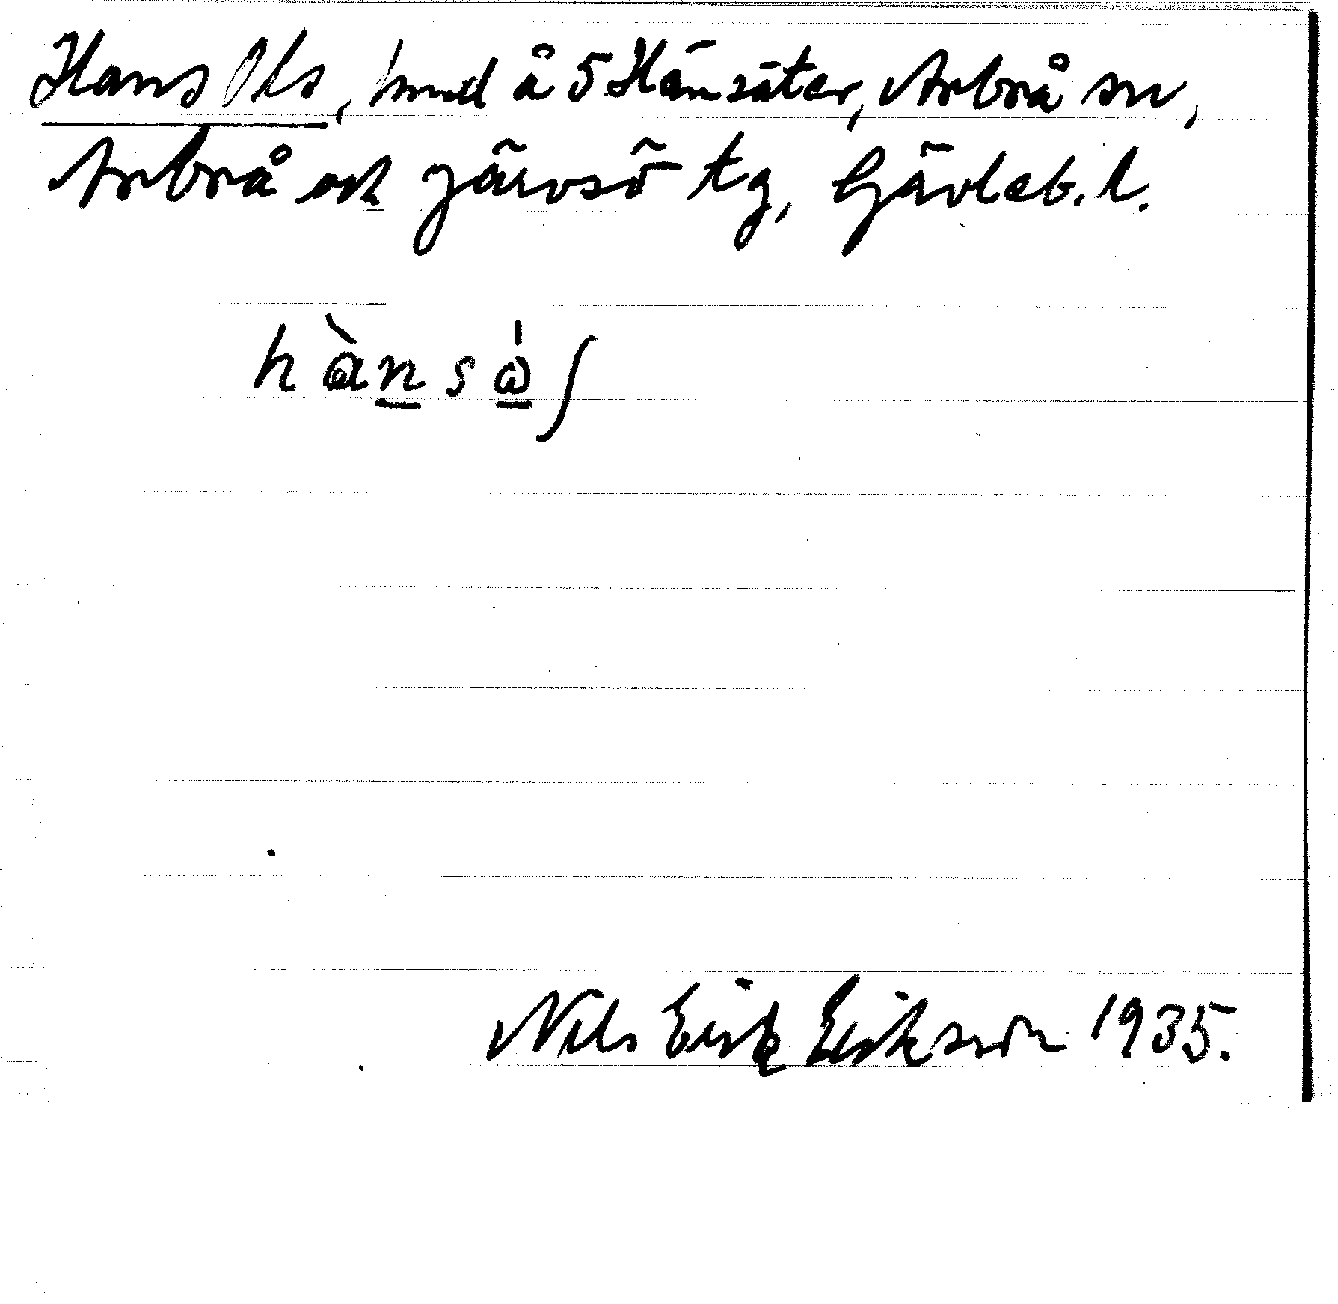 Hans Ols, hmd å 5 Hänsäter, Arbrå sn,
Arbrå och Järvsö tg, Gävleb. l.
Nils Erik Eriksson 1935.